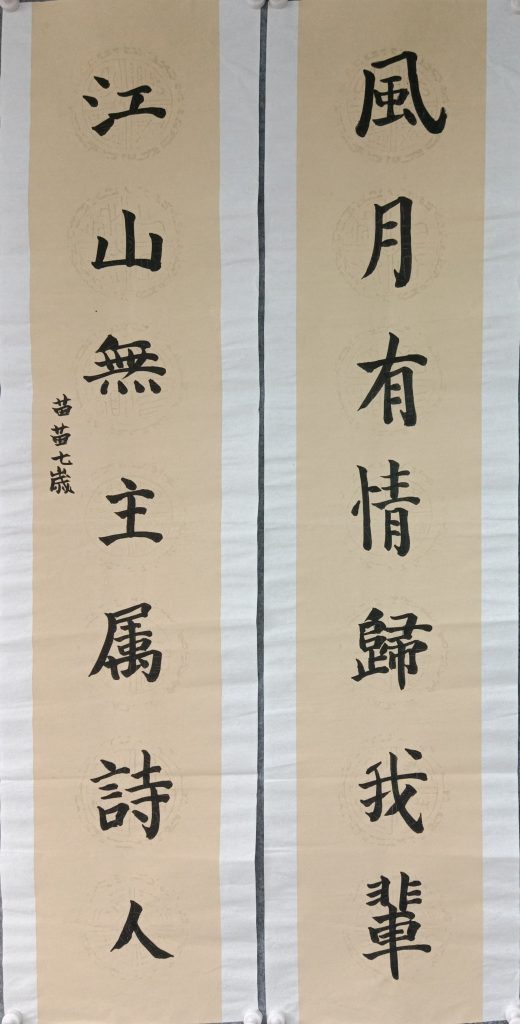 風月有情歸我輩
江山無主属詩人
苗苗七歲